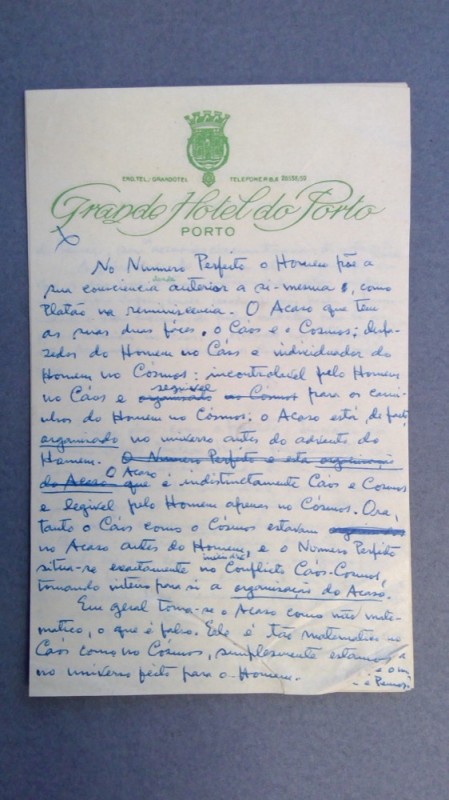 END. TEL.: GRANDOTEL TELEFONE P.B.X.
Grande Hotel do Porto
PORTO
No Número Perfeito o Homem põe a
sua consciencia anterior a si-mesma, como
Platão na reminiscencia. O Acaso que tem
as suas duas fáces, o Cáos e o Cosmos;
do Homem no Cáos e individuador do
Homem no Cósmos: incontrolavel pelo Homem
no Cáos e legivel organisado no Cósmos para os cami-
nhos do Homem no Cósmos; o Acaso está, de facto,
organisado no universo antes do advento do
Homem. O Numero Perfeito e esta organisação
do Acaso O Acaso que é indistinctamente Cáos e Cosmos
e legivel pelo Homem apenas no Cósmos. Ora,
tanto o Cáos como o Cósmos estavam
no Acaso antes do Homem, e o Número Perfeito
situa-se exactamente no Conflicto Cáos-Cosmos,
tornando inteira para si a organisação do Acaso.
Em geral toma-se o Acaso como não mate-
matico, o que é falso. Ele é tão matematico no
Cáos como no Cósmos, simplesmente estamos
no universo feito para o Homem.